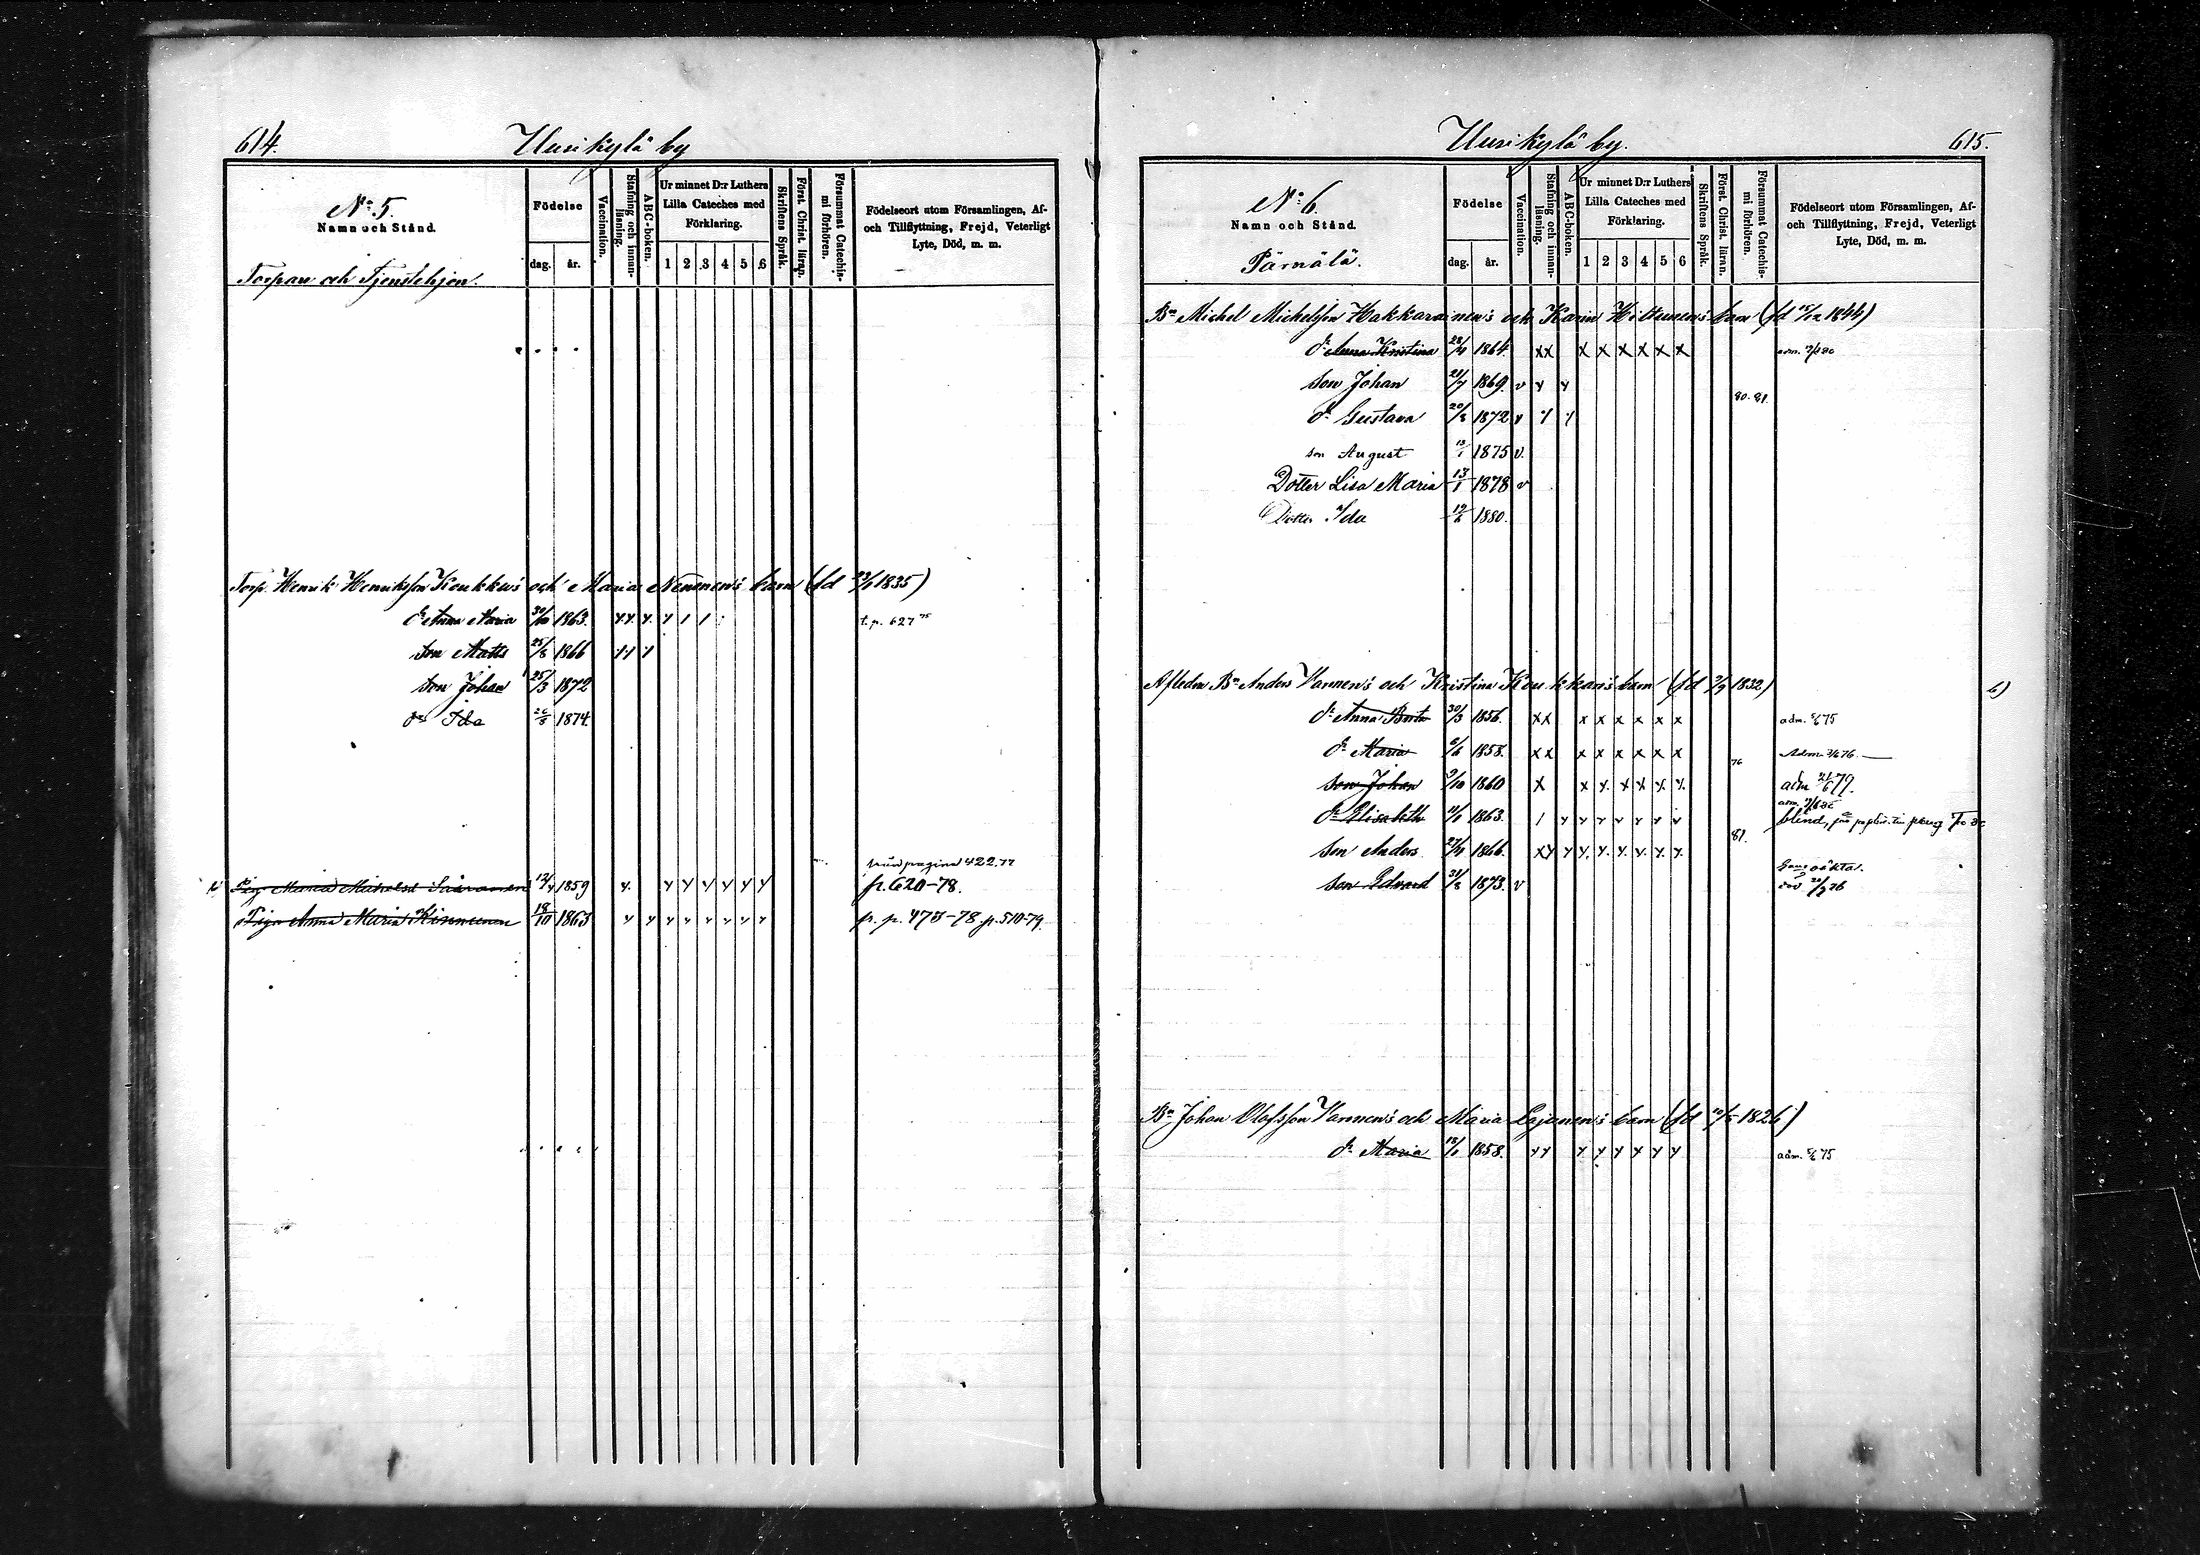 614.
Uusikylä by
N:o 5.
Namn och Stånd.
Torpare och Tjenstehjon.
Födelse
dag. år.
Vaccination.
Stafning och innanläsning.
ABC-boken.
Ur minnet D:r Luthers Lilla Cateches med Förklaring.
1 2 3 4 5 6
Skriftens Språk.
Först. Christ. läran.
Försummat Catechismi förhören.
Födelseort utom Församlingen, Af- och Tillflyttning, Frejd, Veterligt Lyte, Död, m. m.
Torp. Henrik Henriksson Koukkas's och Maria Nenonen's barn (fd 1835)
dr Anna Maria 30/10 1863. t. p. 627 75
son Matts 25/8 1866
son Johan 25/3 1872
dr Ida 26/8 1874.
pagina 422. 77
Pig Maria 12/4 1859 p. 620-78.
Pig Anna Maria Kinnunen 18/10 1863 p. 473-78 p. 510-79.
615.
Uusikylä by.
N:o 6.
Namn och Stånd.
Pärnälä.
Födelse
dag. år.
Vaccination.
Stafning och innanläsning.
ABC-boken.
Ur minnet D:r Luthers Lilla Cateches med Förklaring.
1 2 3 4 5 6
Skriftens Språk.
Först. Christ. läran.
Försummat Catechismi förhören.
Födelseort utom Församlingen, Af- och Tillflyttning, Frejd, Veterligt Lyte, Död, m. m.
Bn Michel Michelsson Hakkarainen's och Karin Hiltunen's barn (fd 15/12 1844)
dr Anna Kristina 1864. x x x x x x x x adm.
son Johan 21/7 1869. v
80. 81.
dr Gustava 20/8 1872 v
son August 13/1 1875 v.
Dotter Lisa Maria 13/1 1878 v
Dotter Ida 19/6 1880.
Afledne Bn Anders Vannen's och Kristina Koukkari's barn (fd 2/9 1832)
dr Anna Brita 30/3 1856. x x x x x x x x adm. 75
dr Maria 6/6 1858. x x x x x x x x 76 Adm. 76
son Johan 9/10 1860 x adm 21/6 79.
dr Elisabeth 11/1 1863. adm.
blind,
81.
son Anders 27/4 1866.
son Edvard 31/8 1873. v
Bn Johan Olofsson Vannen's och Maria Lajunen's barn (fd 1826)
dr Maria 13/1 1858. adm. 75